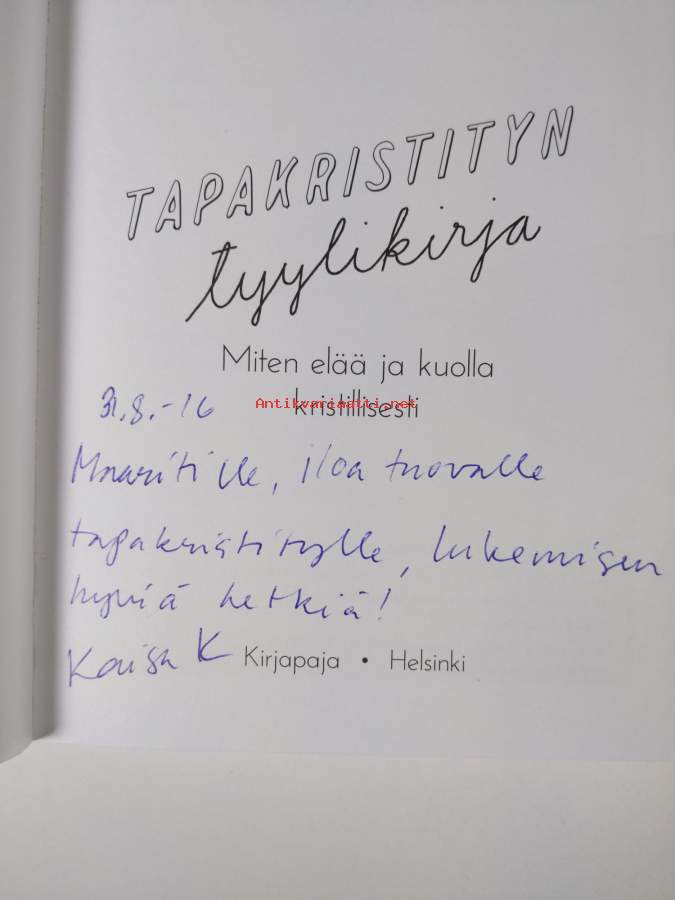 TAPAKRISTITYN
tyylikirja
Miten elää ja kuolla
kristillisesti
Antikvariaatti.net
31.8.-16
Maaritille, iloa tuovalle
tapakristitylle, lukemisen
hyviä hetkiä!
Kaisa K
Kirjapaja • Helsinki